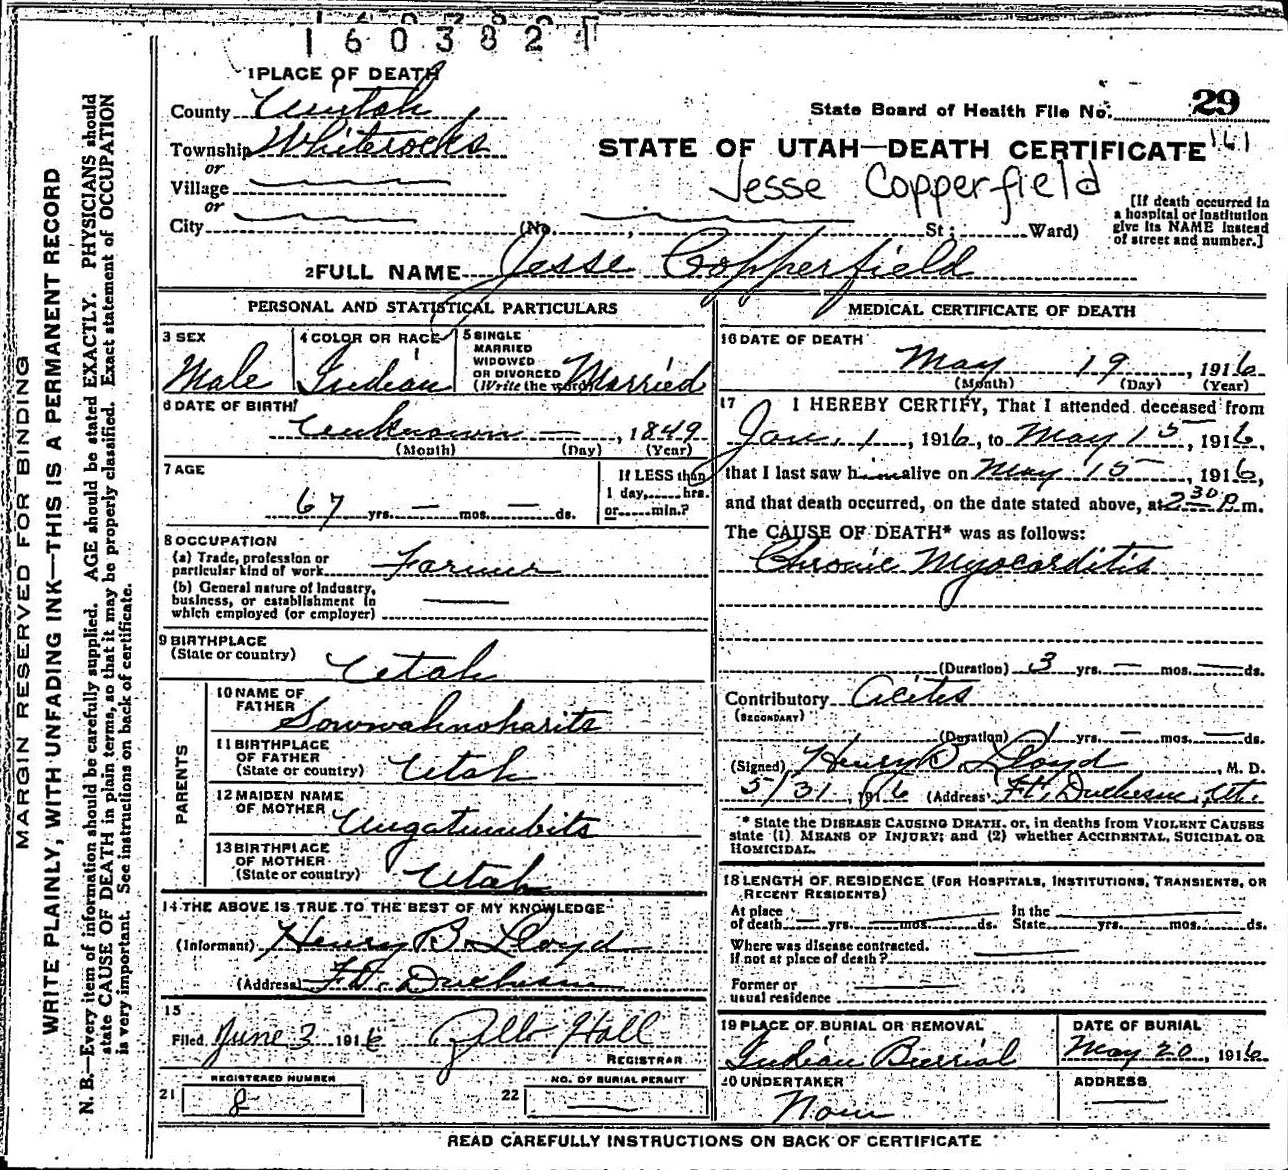 160382
1 PLACE OF DEATH
County Uintah
State Board of Health File No. 29
Township Whiterocks
STATE OF UTAH—DEATH CERTIFICATE 161
or
Village
Jesse Copperfield
or
City (No. , St; Ward)
[If death occurred in
a hospital or institution
give its NAME instead
of street and number.]
2 FULL NAME Jesse Copperfield
PERSONAL AND STATISTICAL PARTICULARS
3 SEX
Male
4 COLOR OR RACE
Indian
5 SINGLE
MARRIED
WIDOWED
OR DIVORCED
(Write the word) Married
6 DATE OF BIRTH
Unknown — , 1849
(Month) (Day) (Year)
7 AGE
67 yrs. — mos. — ds.
If LESS than
1 day, hrs.
or min.?
8 OCCUPATION
(a) Trade, profession or
particular kind of work Farmer
(b) General nature of Industry,
business, or establishment in
which employed (or employer)
9 BIRTHPLACE
(State or country)
Utah
PARENTS
10 NAME OF
FATHER
Sowwahnoharits
11 BIRTHPLACE
OF FATHER
(State or country) Utah
12 MAIDEN NAME
OF MOTHER
Ungatumbits
13 BIRTHPLACE
OF MOTHER
(State or country) Utah
14 THE ABOVE IS TRUE TO THE BEST OF MY KNOWLEDGE
(Informant) Henry B. Lloyd
(Address) Ft. Duchesne
15
Filed June 3 1916 Hall
REGISTRAR
21 REGISTERED NUMBER
8
22 NO. OF BURIAL PERMIT
—
MEDICAL CERTIFICATE OF DEATH
16 DATE OF DEATH
May 19 , 1916
(Month) (Day) (Year)
17 I HEREBY CERTIFY, That I attended deceased from
Jan. 1 , 1916, to May 15 , 1916,
that I last saw him alive on May 15 , 1916,
and that death occurred, on the date stated above, at 2 30 P.m.
The CAUSE OF DEATH* was as follows:
Chronic Myocarditis
(Duration) 3 yrs. — mos. — ds.
Contributory Acites
(SECONDARY)
(Duration) yrs. — mos. — ds.
(Signed) Henry B. Lloyd , M. D.
5/31, 1916 (Address) Ft. Duchesne, Ut.
* State the DISEASE CAUSING DEATH, or, in deaths from VIOLENT CAUSES
state (1) MEANS OF INJURY; and (2) whether ACCIDENTAL, SUICIDAL OR
HOMICIDAL.
18 LENGTH OF RESIDENCE (FOR HOSPITALS, INSTITUTIONS, TRANSIENTS, OR
RECENT RESIDENTS)
At place In the
of death yrs. mos. ds. State yrs. mos. ds.
Where was disease contracted.
If not at place of death?
Former or
usual residence
19 PLACE OF BURIAL OR REMOVAL
Indian Burrial
DATE OF BURIAL
May 20 , 1916
20 UNDERTAKER
None
ADDRESS
READ CAREFULLY INSTRUCTIONS ON BACK OF CERTIFICATE
MARGIN RESERVED FOR BINDING
WRITE PLAINLY, WITH UNFADING INK—THIS IS A PERMANENT RECORD
N. B.—Every item of information should be carefully supplied. AGE should be stated EXACTLY. PHYSICIANS should
state CAUSE OF DEATH in plain terms, so that it may be properly classified. Exact statement of OCCUPATION
is very important. See instructions on back of certificate.